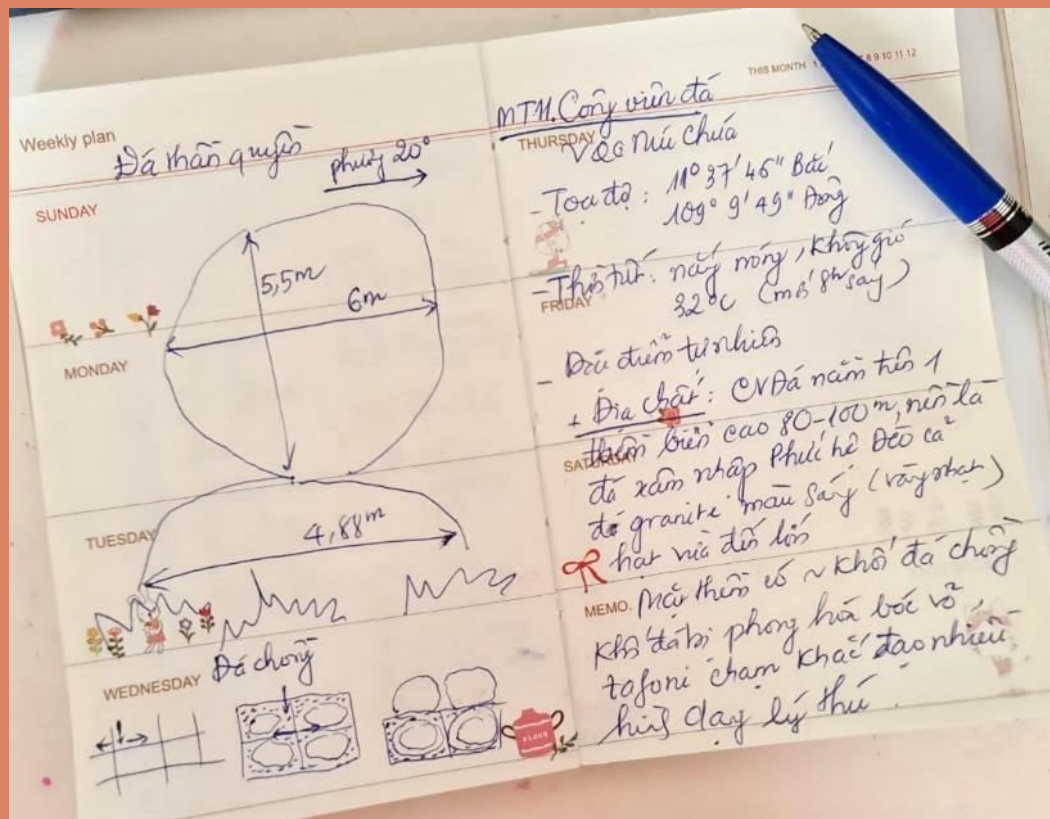 Weekly plan
Đá thần quyền
phương 20°
SUNDAY
5,5m
6m
MONDAY
TUESDAY
4,88m
Đá chồng
WEDNESDAY
THIS MONTH 1 7 8 9 10 11 12
MTH. Công viên đá
THURSDAY
VQG Núi Chúa
- Tọa độ: 11° 37' 46" Bắc
109° 9' 49" Đông
- Thời tiết: nắng nóng, không gió
FRIDAY
32°C (mới 8h sáng)
- Đặc điểm tự nhiên
+ Địa chất: CVĐá nằm trên 1
thềm biển cao 80-100m, nền là
SATURDAY
đá xâm nhập Phức hệ Đèo cả
đó granite màu sáng (vàng nhạt)
hạt vừa đến lớn
MEMO.
Mặt thềm có ~ khối đá chồng
khối đá bị phong hóa bóc vỏ,
tafoni chạm khắc tạo nhiều
hình dạng lý thú.
FLOUR